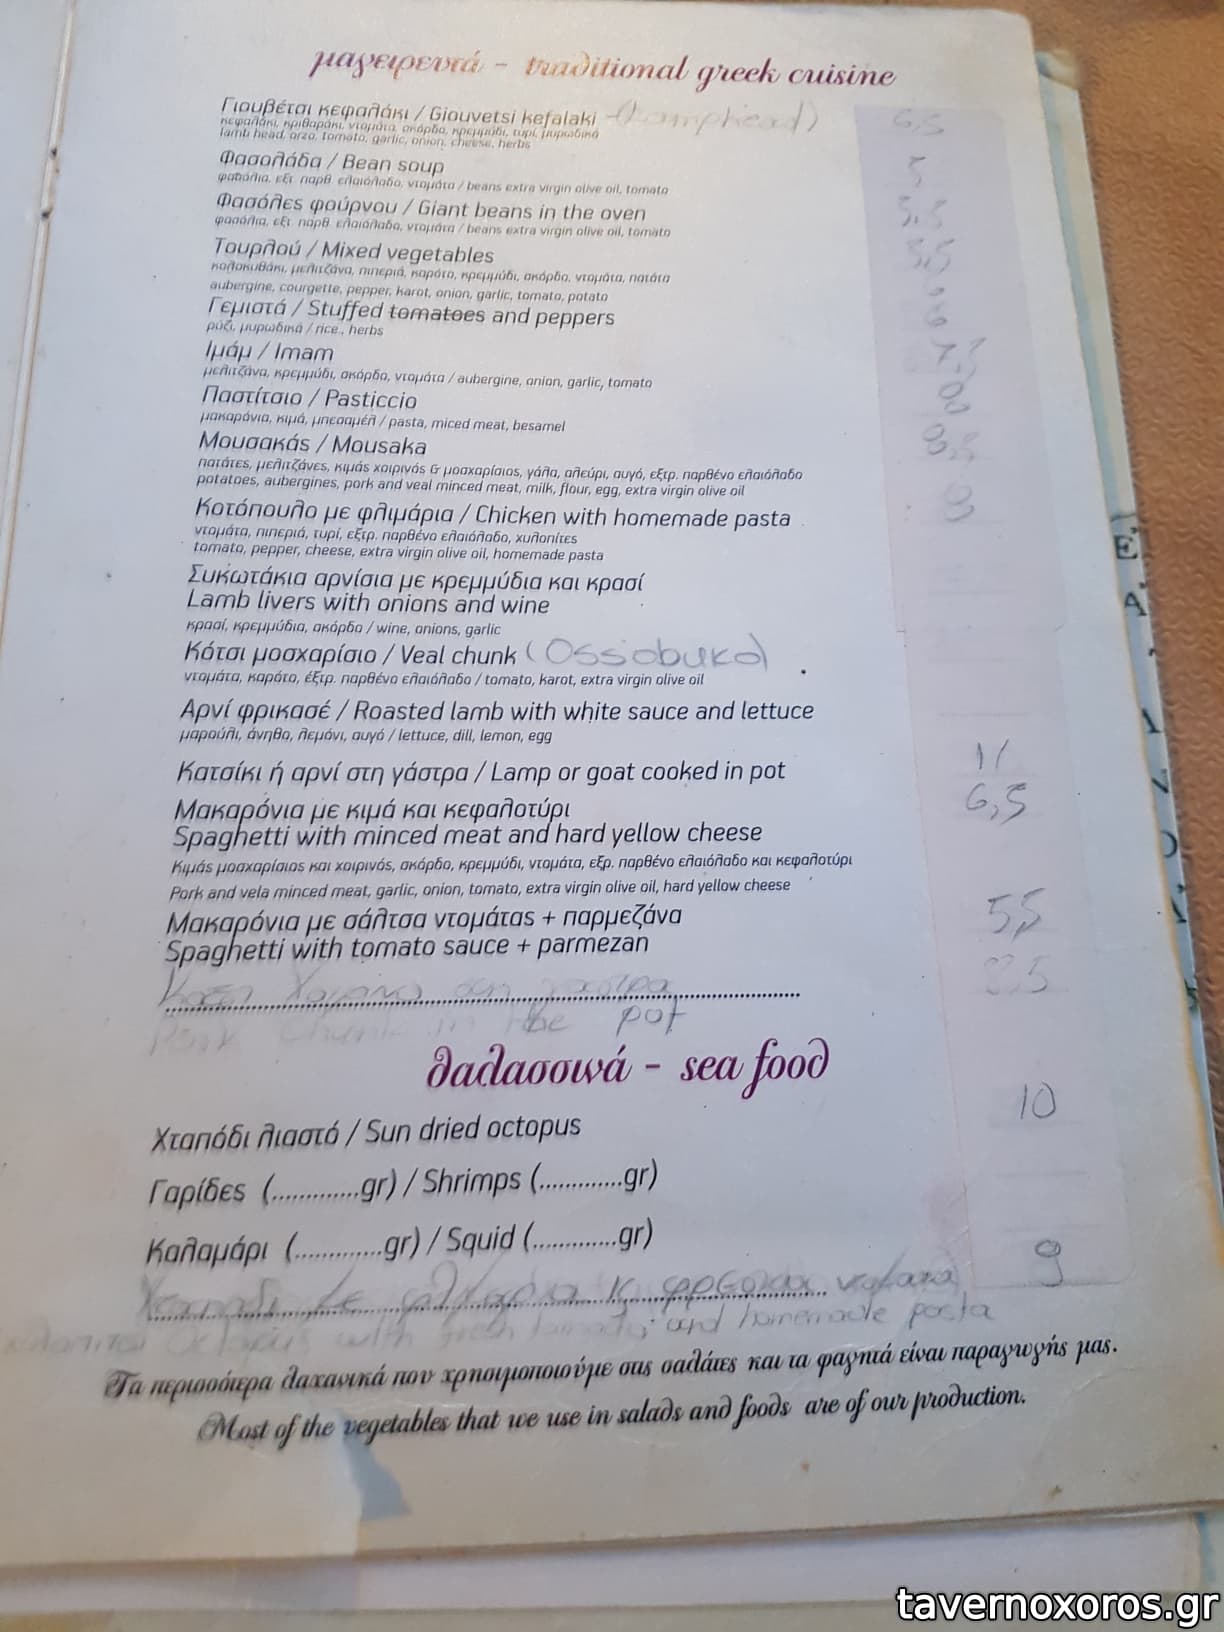 μαγειρευτά - traditional greek cuisine
Γιουβέτσι κεφαλάκι / Giouvetsi kefalaki - (Lamphead) 6,5
κεφαλάκι, κριθαράκι, ντομάτα, σκόρδο, κρεμμύδι, τυρί, μυρωδικά
lamb head, orzo, tomato, garlic, onion, cheese, herbs
Φασολάδα / Bean soup 5
φασόλια, εξτ. παρθ. ελαιόλαδο, ντομάτα / beans extra virgin olive oil, tomato
Φασόλες φούρνου / Giant beans in the oven 5,5
φασόλια, εξτ. παρθ. ελαιόλαδο, ντομάτα / beans extra virgin olive oil, tomato
Τουρλού / Mixed vegetables 5,5
κολοκυθάκι, μελιτζάνα, πιπεριά, καρότο, κρεμμύδι, σκόρδο, ντομάτα, πατάτα
aubergine, courgette, pepper, karot, onion, garlic, tomato, potato
Γεμιστά / Stuffed tomatoes and peppers
ρύζι, μυρωδικά / rice., herbs
Ιμάμ / Imam
μελιτζάνα, κρεμμύδι, σκόρδο, ντομάτα / aubergine, onion, garlic, tomato
Παστίτσιο / Pasticcio
μακαρόνια, κιμά, μπεσαμέλ / pasta, miced meat, besamel
Μουσακάς / Mousaka
πατάτες, μελιτζάνες, κιμάς χοιρινός & μοσχαρίσιος, γάλα, αλεύρι, αυγό, εξτρ. παρθένο ελαιόλαδο
potatoes, aubergines, pork and veal minced meat, milk, flour, egg, extra virgin olive oil
Κοτόπουλο με φλιμάρια / Chicken with homemade pasta
ντομάτα, πιπεριά, τυρί, εξτρ. παρθένο ελαιόλαδο, χυλοπίτες
tomato, pepper, cheese, extra virgin olive oil, homemade pasta
Συκωτάκια αρνίσια με κρεμμύδια και κρασί
Lamb livers with onions and wine
κρασί, κρεμμύδια, σκόρδο / wine, onions, garlic
Κότσι μοσχαρίσιο / Veal chunk (Ossiobuko)
ντομάτα, καρότο, έξτρ. παρθένο ελαιόλαδο / tomato, karot, extra virgin olive oil
Αρνί φρικασέ / Roasted lamb with white sauce and lettuce
μαρούλι, άνηθο, λεμόνι, αυγό / lettuce, dill, lemon, egg
Κατσίκι ή αρνί στη γάστρα / Lamp or goat cooked in pot 11
Μακαρόνια με κιμά και κεφαλοτύρι 6,5
Spaghetti with minced meat and hard yellow cheese
Κιμάς μοσχαρίσιος και χοιρινός, σκόρδο, κρεμμύδι, ντομάτα, εξρ. παρθένο ελαιόλαδο και κεφαλοτύρι
Pork and vela minced meat, garlic, onion, tomato, extra virgin olive oil, hard yellow cheese
Μακαρόνια με σάλτσα ντομάτας + παρμεζάνα 5,5
Spaghetti with tomato sauce + parmezan
Κότσι Χοιρινό στη γάστρα 8,5
Pork Chunk in the pot
θαλασσινά - sea food
Χταπόδι λιαστό / Sun dried octopus 10
Γαρίδες (.............gr) / Shrimps (.............gr)
Καλαμάρι (.............gr) / Squid (.............gr)
Χταπόδι με φλιμάρια κ φρέσκια ντομάτα 9
octopus with fresh tomato, and homemade pasta
Τα περισσότερα λαχανικά που χρησιμοποιούμε στις σαλάτες και τα φαγητά είναι παραγωγής μας.
Most of the vegetables that we use in salads and foods are of our production.
tavernoxoros.gr